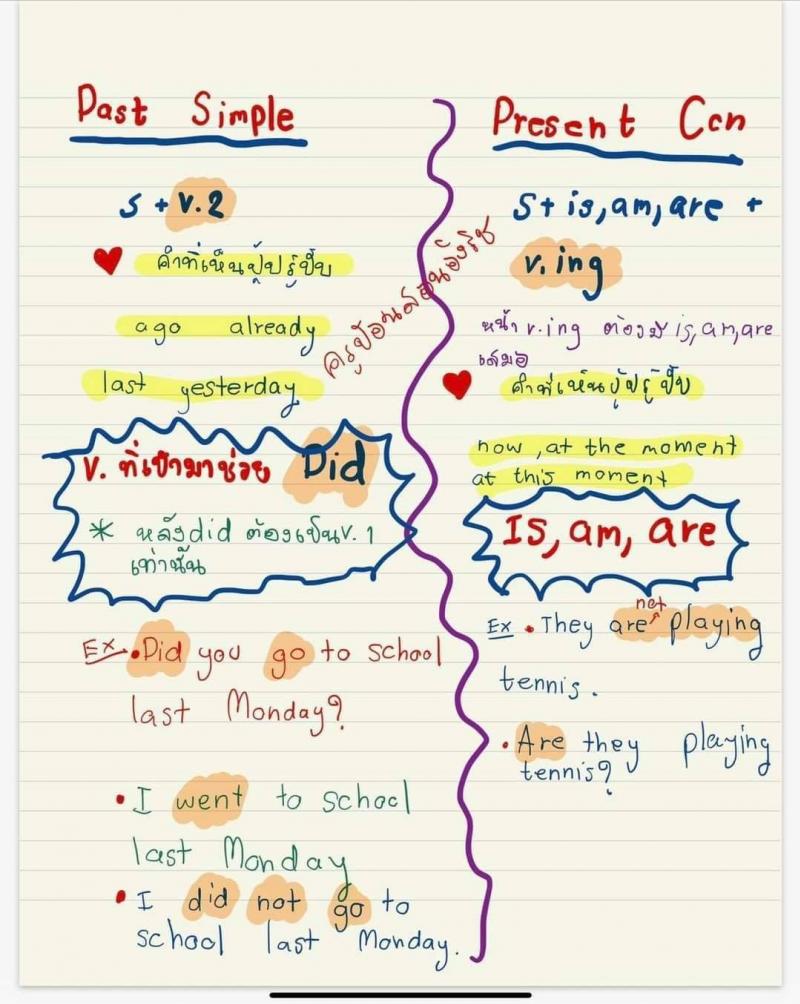 Past Simple
S + V.2
คำที่เห็นปุ้ปรู้ปั้บ
ago already
last yesterday
V. ที่เข้ามาช่วย Did
* หลัง did ต้องเป็น v. 1
เท่านั้น
Ex. • Did you go to school
last Monday?
• I went to school
last Monday
• I did not go to
school last Monday.
ครูป้อนสอนอังกฤษ
Present Con
S + is, am, are +
v. ing
หน้า v.ing ต้องมี is, am, are
เสมอ
คำที่เห็นปุ้ปรู้ปั้บ
now, at the moment
at this moment
IS, am, are
not
Ex • They are playing
tennis.
• Are they playing
tennis?